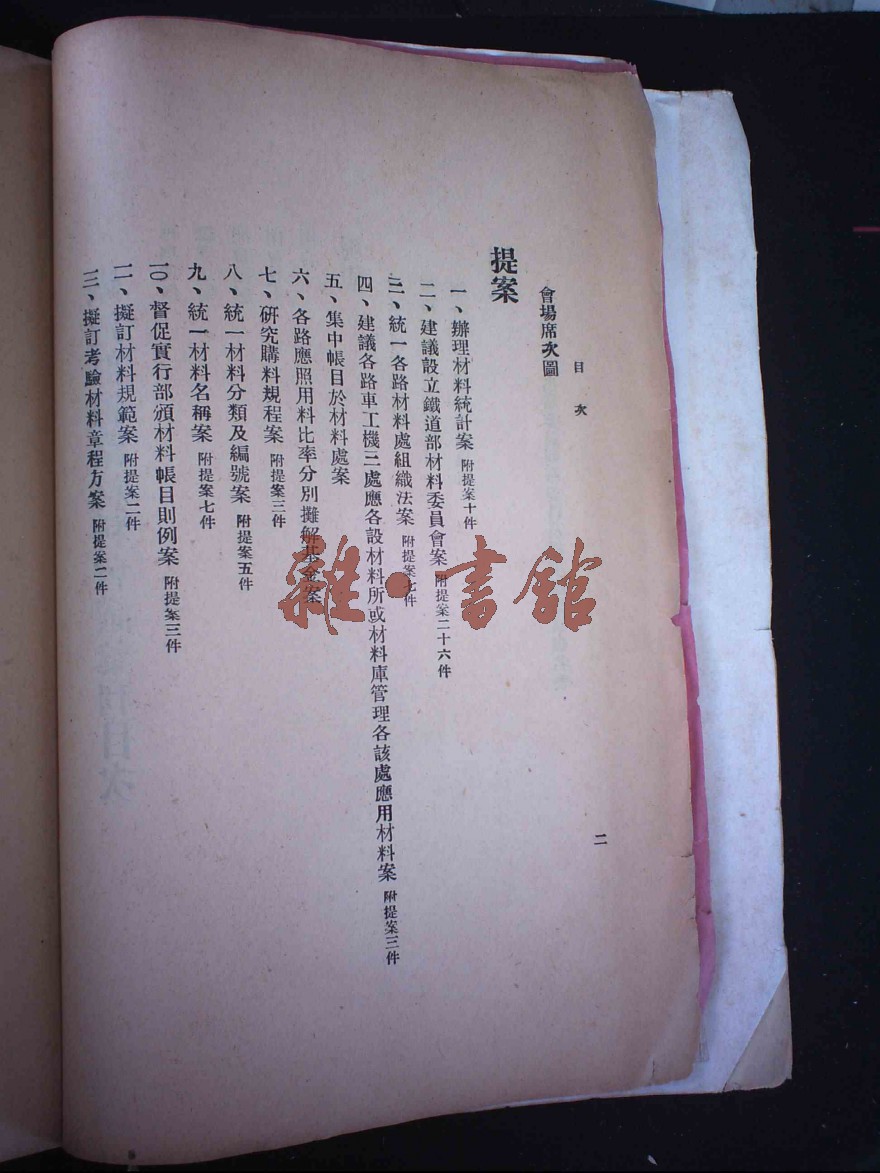 目次
二
會場席次圖
提案
一、辦理材料統計案 附提案十件
二、建議設立鐵道部材料委員會案 附提案二十六件
三、統一各路材料處組織法案 附提案七件
四、建議各路車工機三處應各設材料所或材料庫管理各該處應用材料案 附提案三件
五、集中帳目於材料處案
六、各路應照用料比率分別攤解基金案
七、研究購料規程案 附提案三件
八、統一材料分類及編號案 附提案五件
九、統一材料名稱案 附提案七件
一〇、督促實行部頒材料帳目則例案 附提案三件
一一、擬訂材料規範案 附提案二件
一二、擬訂考驗材料章程方案 附提案二件
雜·書館